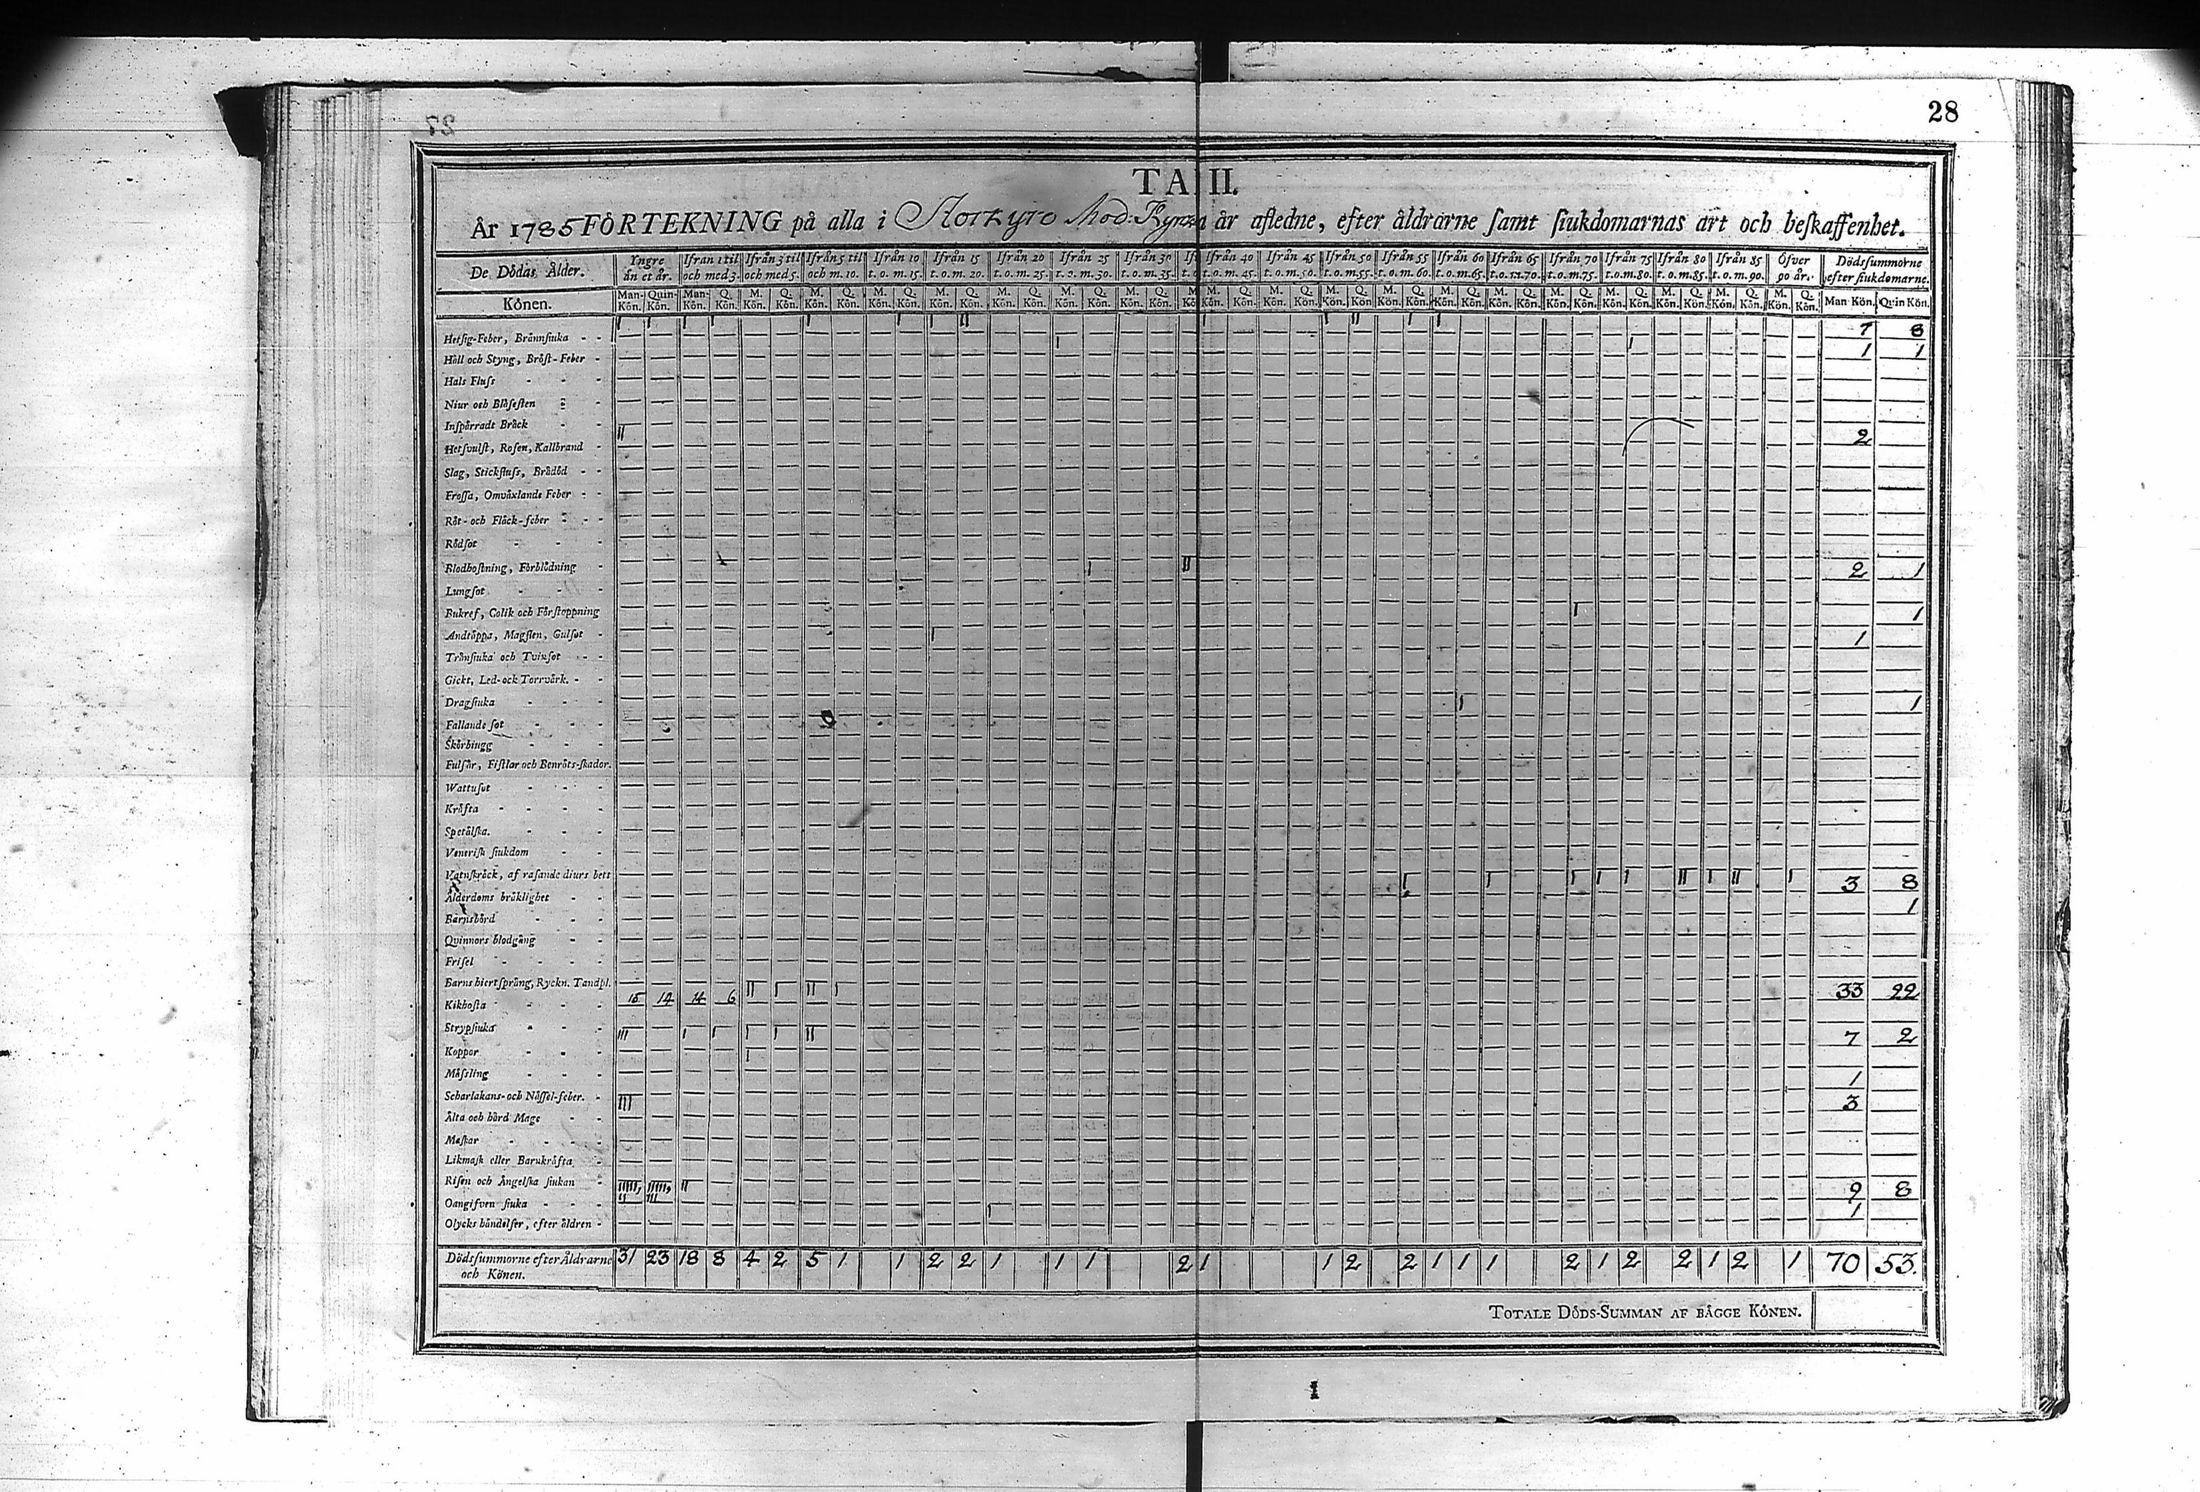 28
27
TA II.
År 1785 FÖRTEKNING på alla i Storkyro Mod: Kyrka år afledne, efter åldrarne samt siukdomarnas art och beskaffenhet.
De Dödas Ålder. Yngre än et år. Ifrån 1 til och med 3. Ifrån 3 til och med 5. Ifrån 5 til och m. 10. Ifrån 10 t. o. m. 15. Ifrån 15 t. o. m. 20. Ifrån 20 t. o. m. 25. Ifrån 25 t. o. m. 30. Ifrån 30 t. o. m. 35. Ifrån 40 t. o. m. 45. Ifrån 45 t. o. m. 50. Ifrån 50 t. o. m. 55. Ifrån 55 t. o. m. 60. Ifrån 60 t. o. m. 65. Ifrån 65 t. o. m. 70. Ifrån 70 t. o. m. 75. Ifrån 75 t. o. m. 80. Ifrån 80 t. o. m. 85. Ifrån 85 t. o. m. 90. Öfver 90 år. Dödssummorne efter siukdomarne.
Könen. Man-Kön. Quin-Kön. Man-Kön. Q. Kön. M. Kön. Q. Kön. M. Kön. Q. Kön. M. Kön. Q. Kön. M. Kön. Q. Kön. M. Kön. Q. Kön. M. Kön. Q. Kön. M. Kön. Q. Kön. M. Kön. Q. Kön. M. Kön. Q. Kön. M. Kön. Q. Kön. M. Kön. Q. Kön. M. Kön. Q. Kön. M. Kön. Q. Kön. M. Kön. Q. Kön. M. Kön. Q. Kön. M. Kön. Q. Kön. M. Kön. Q. Kön. M. Kön. Q. Kön. Man Kön. Qvin Kön.
Hetsig-Feber, Brännsiuka 7 8
Håll och Styng, Bröst-Feber 1 1
Hals Fluss
Niur och Blåsesten
Inspärradt Bråck
Hetsvulst, Rosen, Kallbrand II 2
Slag, Stickfluss, Brådöd
Frossa, Omväxlande Feber
Röt- och Fläck-feber
Rödsot
Blodhostning, Förblödning I II 2 1
Lungsot
Bukref, Colik och Förstoppning I 1
Andtäppa, Magsten, Gulsot I 1
Trånsiuka och Tvinsot
Gickt, Led- och Torrvärk.
Dragsiuka I 1
Fallande sot
Skörbiugg
Fulsår, Fistlar och Benröts-skador.
Wattusot
Kräfta
Spetälska.
Venerisk siukdom
Vatuskräck, af rasande diurs bett
Ålderdoms bräklighet I I I I I II I II I 3 8
Barnsbörd 1
Quinnors blodgång
Frisel
Barns hiertsprång, Ryckn. Tandpl.
Kikhosta 15 14 14 6 II I II I 33 22
Strypsiuka
Koppor III I I I I II 7 2
Måssling I
Scharlakans- och Nässel-feber. 1
Älta och hård Mage III 3
Maskar
Likmask eller Barnkräfta
Risen och Ängelska siukan
Oangifven siuka IIIII, II IIIII, III II 9 8
Olycks händelser, efter åldren I 1
Dödssummorne efter Åldrarne och Könen. 31 23 18 8 4 2 5 1 1 2 2 1 1 1 2 1 1 2 2 1 1 1 2 1 2 2 1 2 1 70 53.
TOTALE DÖDS-SUMMAN AF BÄGGE KÖNEN.
1